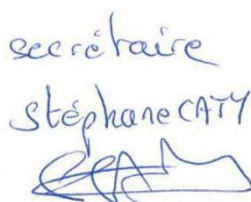 secrétaire
stéphane CATY